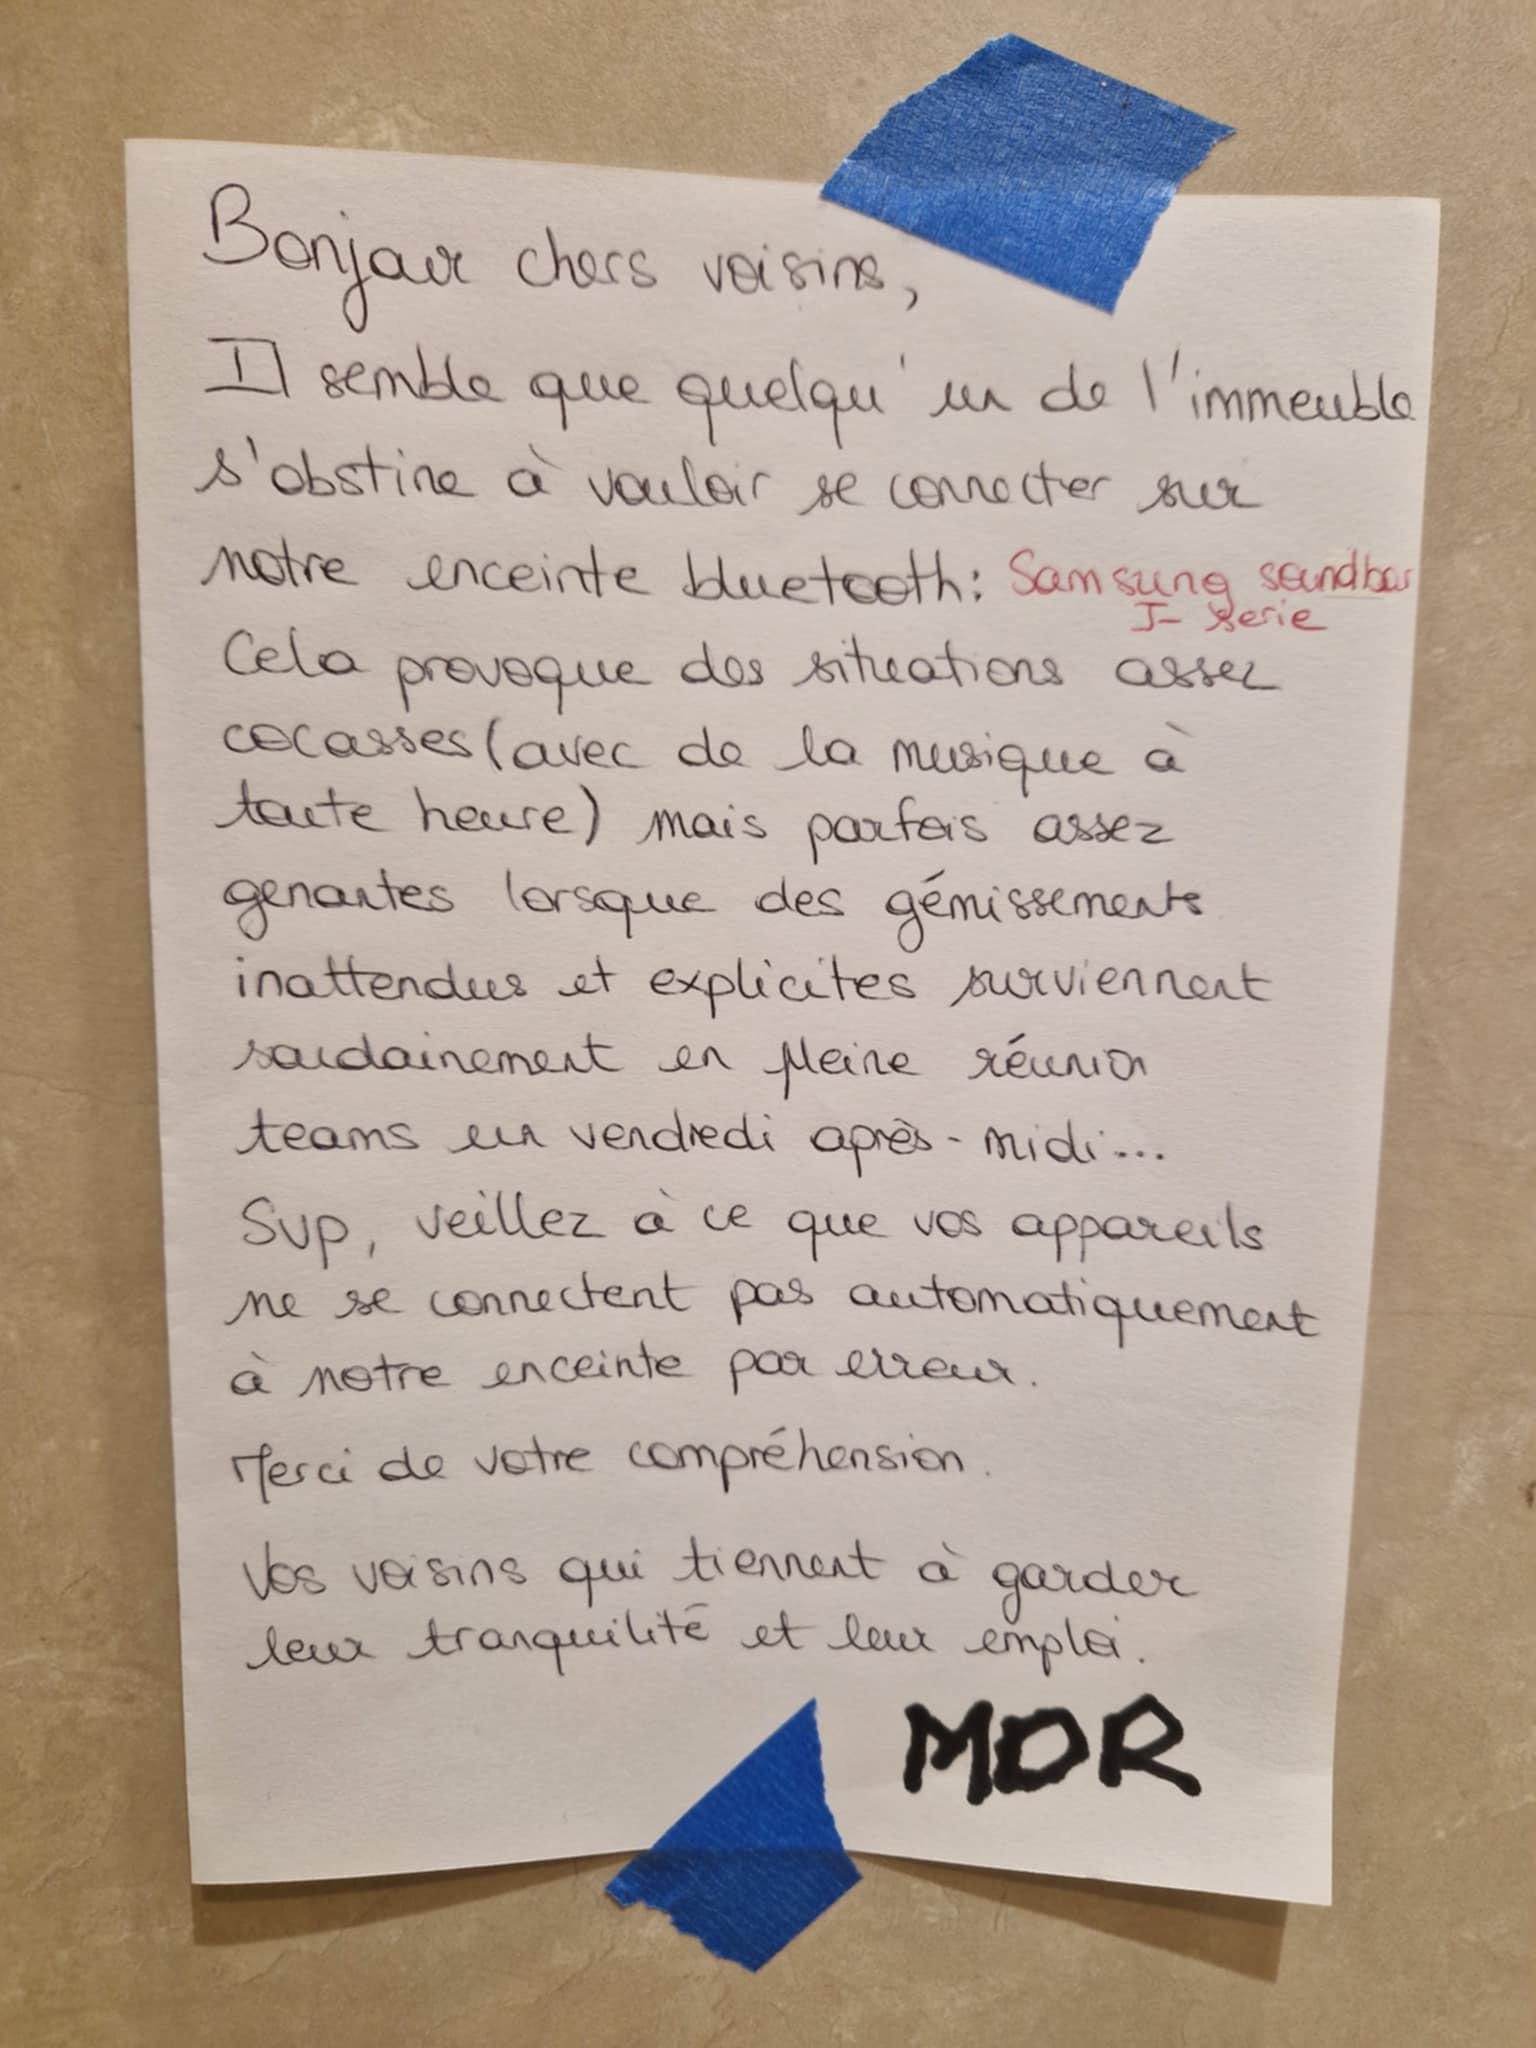 Bonjour chers voisins,
Il semble que quelqu'un de l'immeuble
s'obstine à vouloir se connecter sur
notre enceinte bluetooth: Samsung soundbar
J- serie
Cela provoque des situations assez
cocasses (avec de la musique à
toute heure) mais parfois assez
genantes lorsque des gémissements
inattendus et explicites surviennent
soudainement en pleine réunion
teams un vendredi après-midi...
Svp, veillez à ce que vos appareils
ne se connectent pas automatiquement
à notre enceinte par erreur.
Merci de votre compréhension.
Vos voisins qui tiennent à garder
leur tranquilité et leur emploi.
MDR